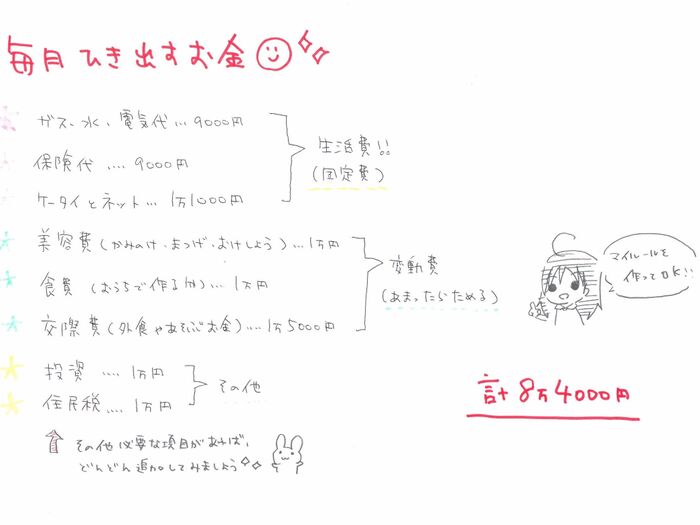 毎月ひき出すお金
ガス、水、電気代…9000円
保険代….9000円
ケータイとネット…1万1000円
生活費!!
(固定費)
美容費(かみのけ、まつげ、おけしょう)…1万円
食費(おうちで作る分)…1万円
交際費(外食やあそぶお金)…1万5000円
変動費
(あまったらためる)
マイルールを
作ってOK!!
投資….1万円
住民税….1万円
その他
計8万4000円
その他必要な項目があれば、
どんどん追加してみましょう